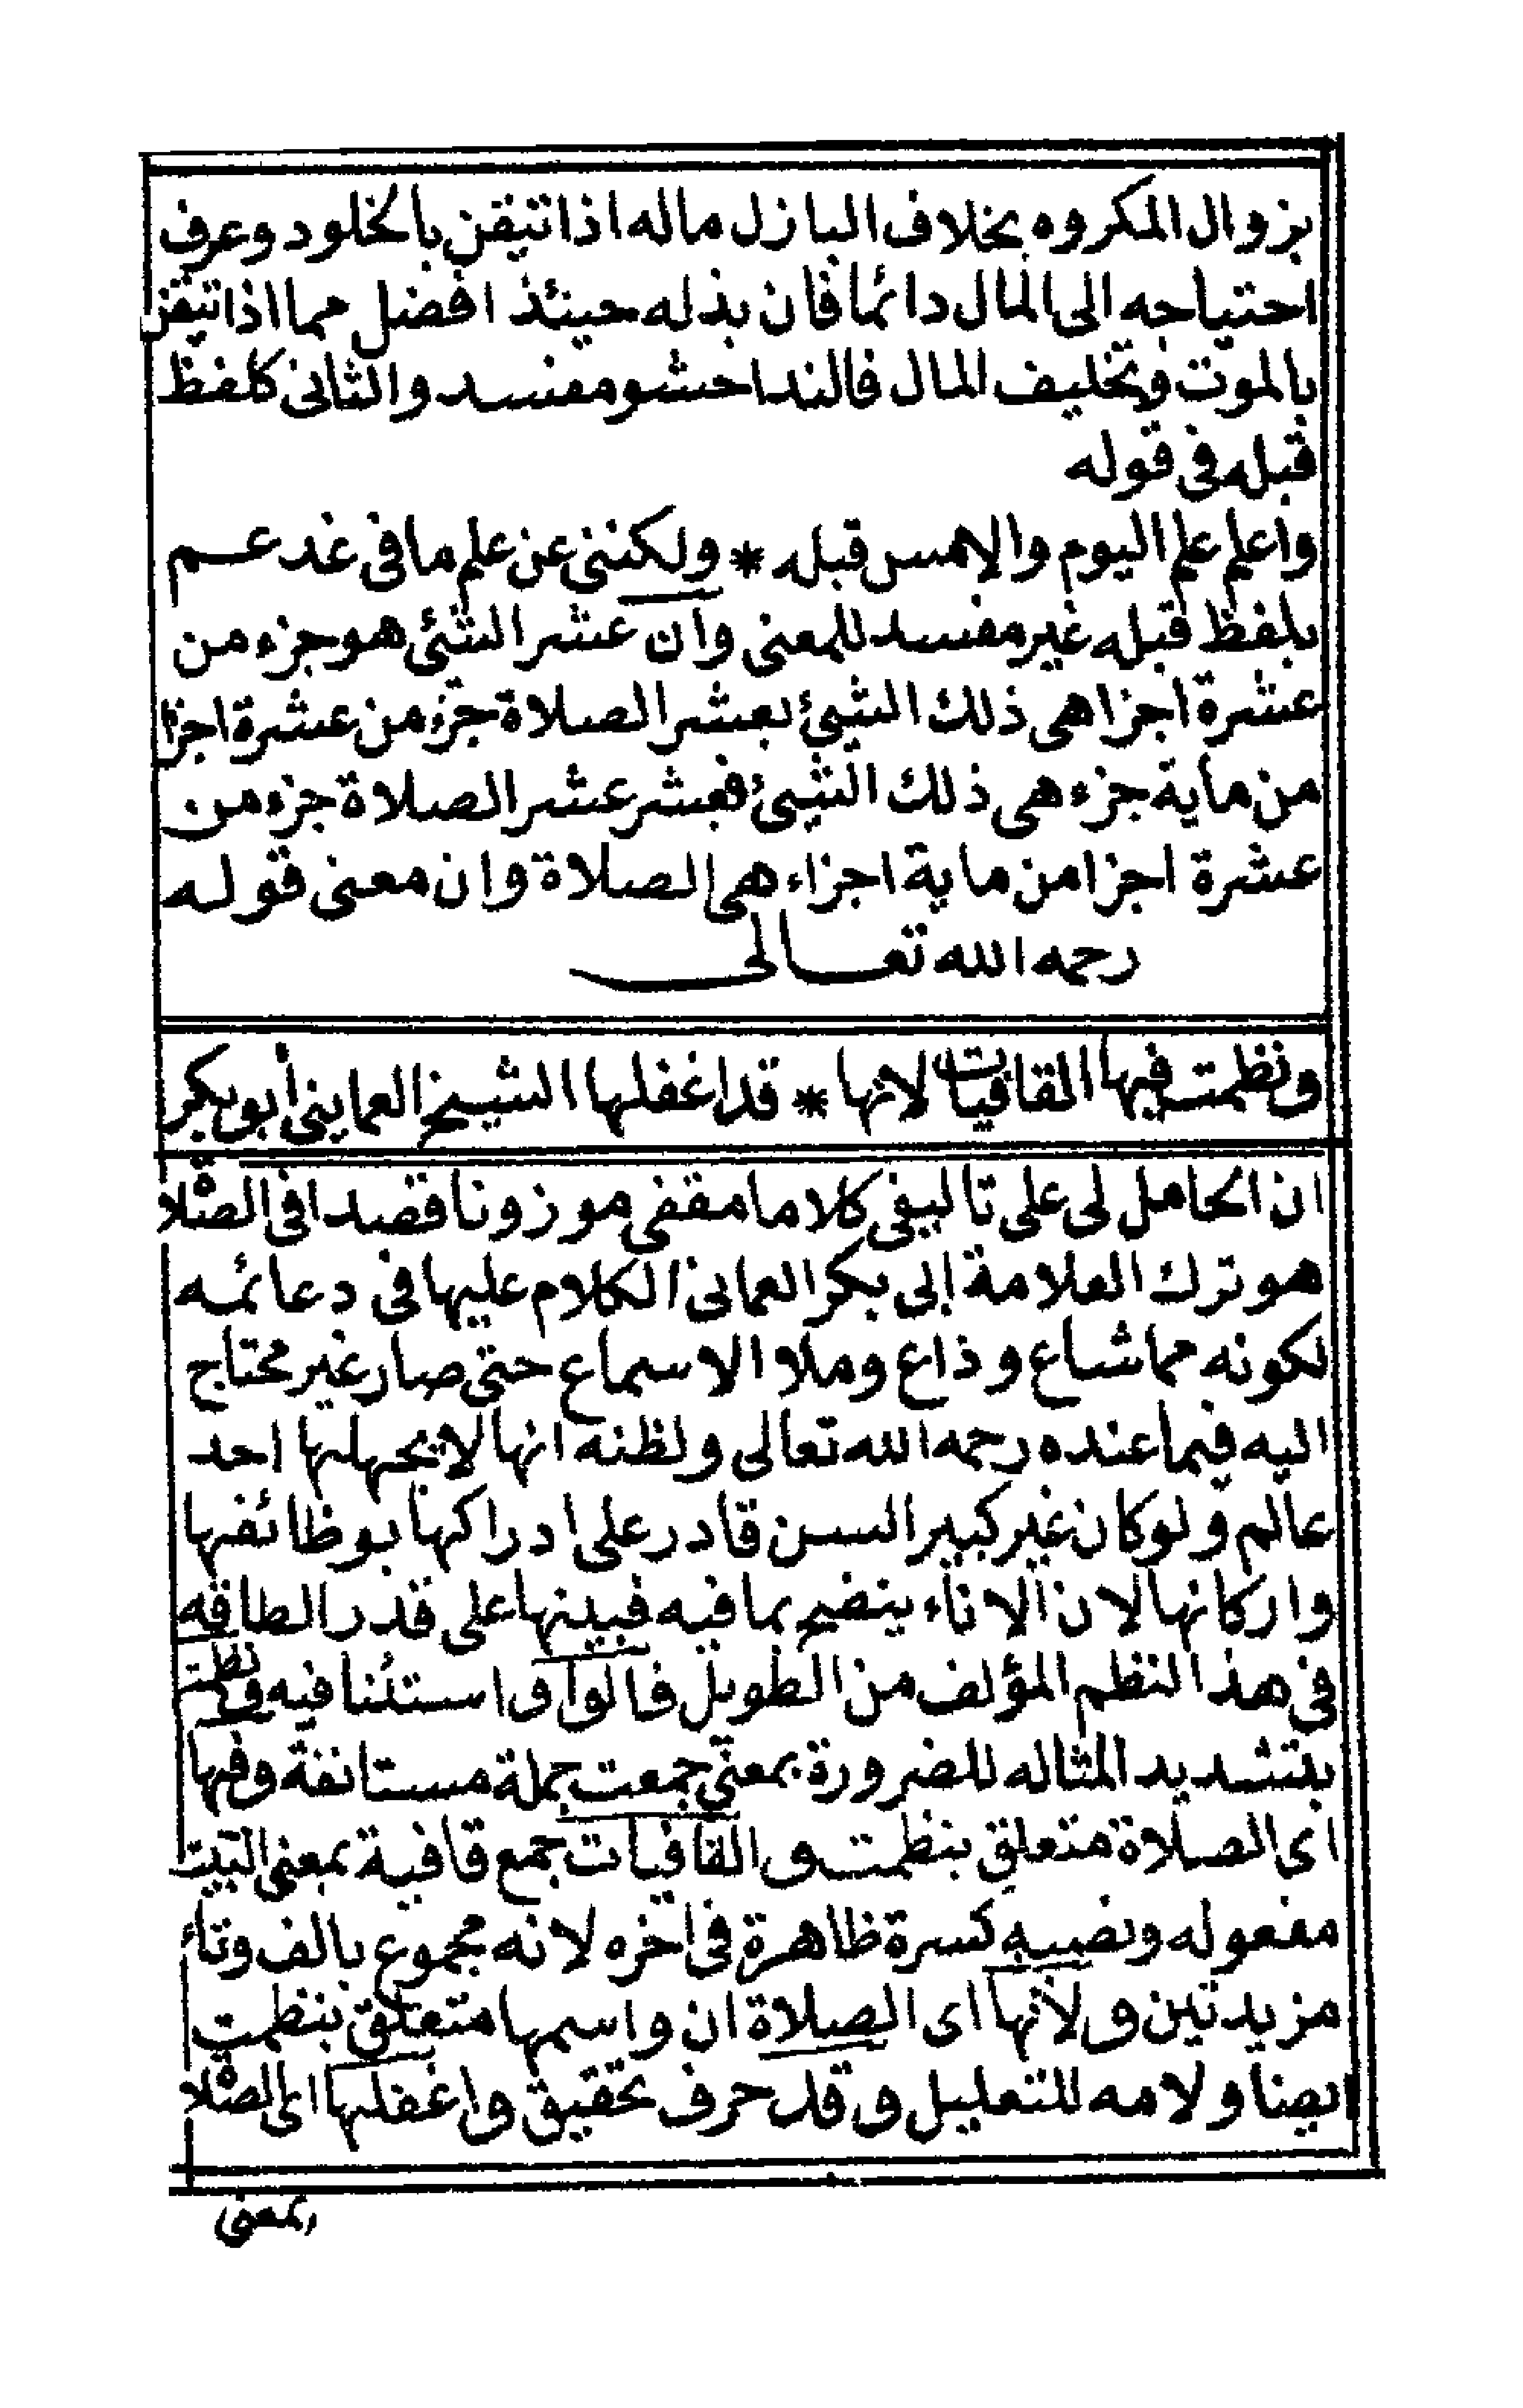 بزوال المكروه بخلاف البازل ماله اذا تيقن بالخلود وعرف
احتياجه الى المال دائما فان بذله حينئذ افضل مما اذا تيقن
بالموت وتخليف المال فالندا حشو مفسد والثانى كلفظ
قبله فى قوله
واعلم علم اليوم والامس قبله * ولكننى عن علم ما فى غد عم
بلفظ قبله غير مفسد للمعنى وان عشر الشئ هو جزء من
عشرة اجزا هى ذلك الشئ بعشر الصلاة جزء من عشرة اجزا
من ماية جزء هى ذلك الشئ فعشر عشر الصلاة جزء من
عشرة اجزا من ماية اجزاء هى الصلاة وان معنى قوله
رحمه الله تعالى
ونظمت فيها القافيات لانها * قد اغفلها الشيخ العماينى أبو بكر
ان الحامل لى على تاليفى كلاما مقفى موزونا قصدا فى الصلاة
هو ترك العلامة ابى بكر العمانى الكلام عليها فى دعائمه
لكونه مما شاع وذاع وملا الاسماع حتى صار غير محتاج
اليه فيما عنده رحمه الله تعالى ولظنه انها لا يجهلها احد
عالم ولو كان غير كبير السن قادر على ادراكها بوظائفها
واركانها لان الاناء ينضح بما فيه فبينها على قدر الطاقه
فى هذا النظم المؤلف من الطويل فالواو استئنافيه ونظمت
بتشديد المثاله للضرورة بمعنى جمعت جملة مستانفة وفيها
اى الصلاة متعلق بنظمت والقافيات جمع قافية بمعنى البيت
مفعوله ونصبه كسرة ظاهرة فى اخره لانه مجموع بالف وتاء
مزيدتين ولأنها اى الصلاة ان واسمها متعلق بنظمت
ايضا ولامه للتعليل وقد حرف تحقيق واغفلها اى الصلاة
بمعنى